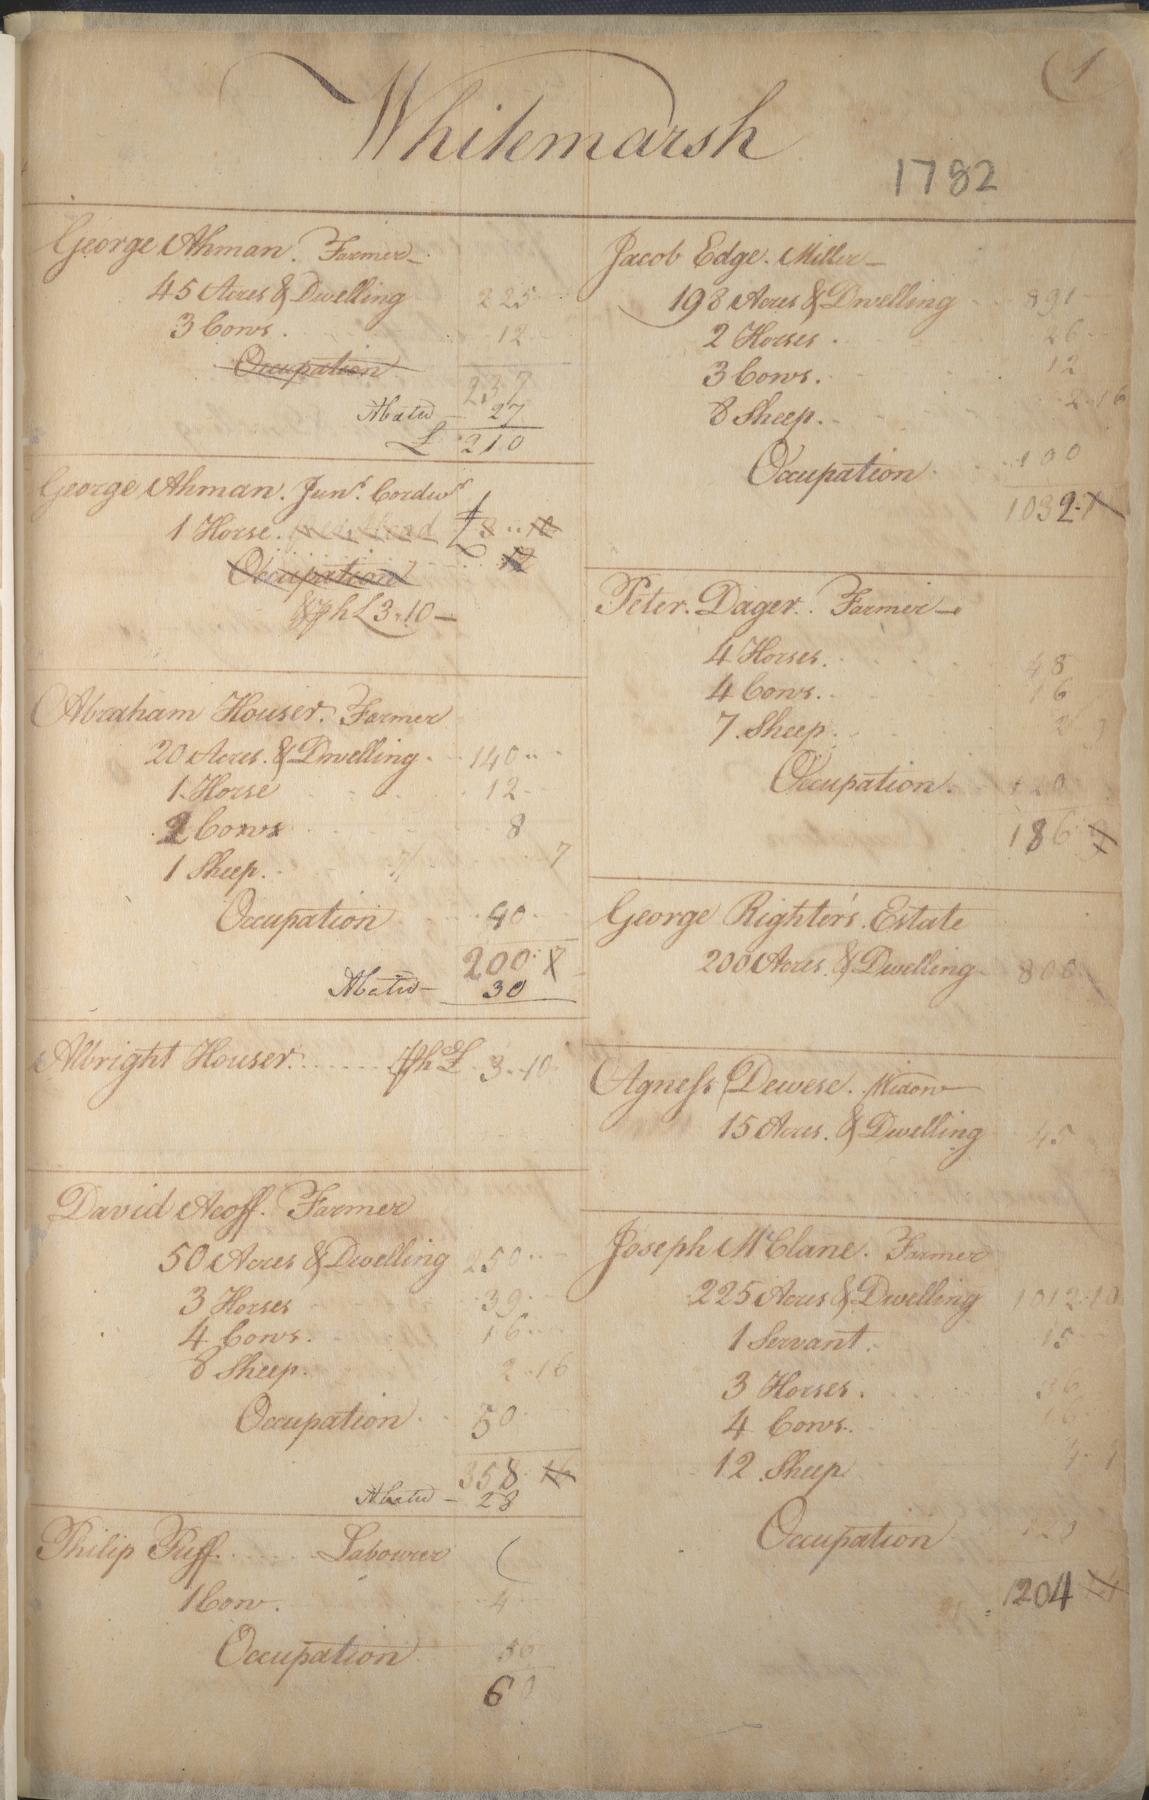 1
Whitemarsh
1782
George Ahman. Farmer
45 Acres & Dwelling 225
3 Cows. 12
Occupation
237
Abated 27
£ 210
George Ahman. Junr. Cordwr
1 Horse. £ 8 .. 10
Occupation 12
£3.10
Abraham Houser. Farmer
20 Acres. & Dwelling. 140
1 Horse 12
2 Cows 8
1 Sheep. 7
Occupation 40
200. 7
Abated 30
Albright Houser. 3..10
David Acoff. Farmer
50 Acres & Dwelling 250
3 Horses 39
4 Cows. 16
8 Sheep. 2..16
Occupation 50
358. 16
Abated 28
Philip Puff. Labourer
1 Cow. 4
Occupation
60
Jacob Edge. Miller
198 Acres & Dwelling 891
2 Horses. 26
3 Cows. 12
8 Sheep. 2.16
Occupation. 100
1032.
Peter. Dager. Farmer
4 Horses. 48
4 Cows. 16
7 Sheep. 2
Occupation. 120
186
George Righter's. Estate
200 Acres. & Dwelling 800
Agness Dewese. Widow
15 Acres. & Dwelling 45
Joseph McClane. Farmer
225 Acres & Dwelling 1012.10
1 Servant. 15
3 Horses. 36
4 Cows. 16
12 Sheep 4
Occupation 120
1204